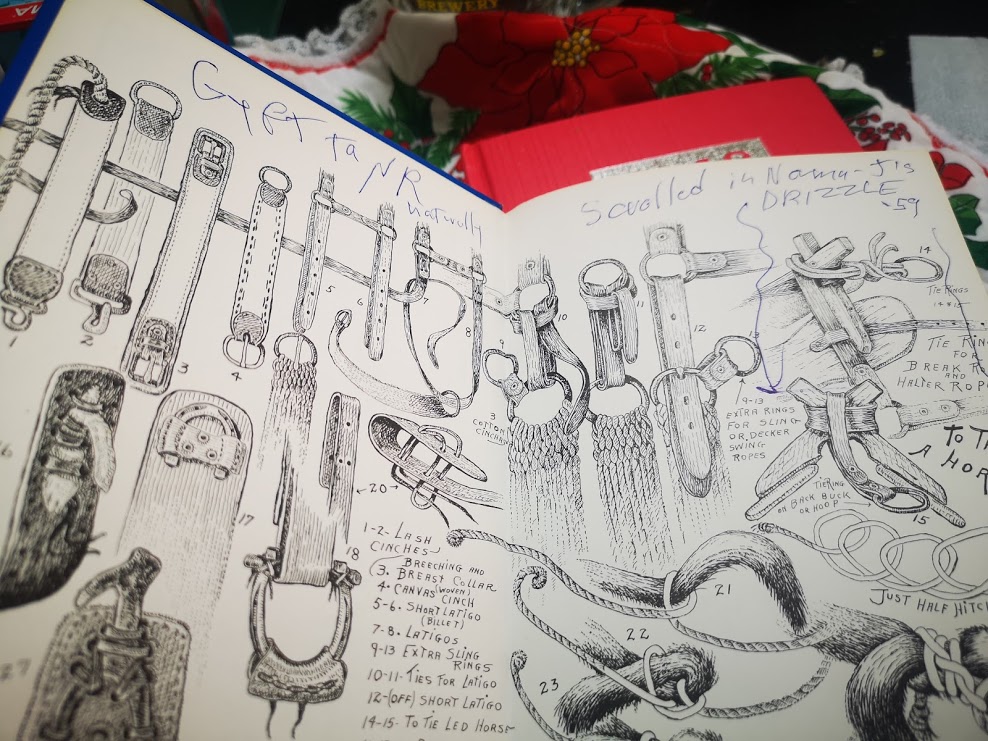 BREWERY
Gyft ta NR
naturally
Scrolled in Noma-J's
DRIZZLE
-59
1
2
3
4
5
6
7
8
9
10
11
12
13
14
TIE RINGS
14 & 15
TIE RING
FOR
BREAK
AND
HALTER ROPE
3
COTTON
CINCHAS
9-13
EXTRA RINGS
FOR SLING
OR DECKER
SWING
ROPES
TO
A HOR
TIE RING
ON BACK BUCK
OR HOOP
15
←20→
17
18
1-2- LASH
CINCHES-
BREECHING AND
(3. BREAST COLLAR
4- CANVAS (WOVEN)
CINCH
5-6. SHORT LATIGO
(BILLET)
7-8. LATIGOS
9-13 EXTRA SLING
RINGS
10-11- TIES FOR LATIGO
12-(OFF) SHORT LATIGO
14-15- TO TIE LED HORSE
21
JUST HALF HITC
22
23